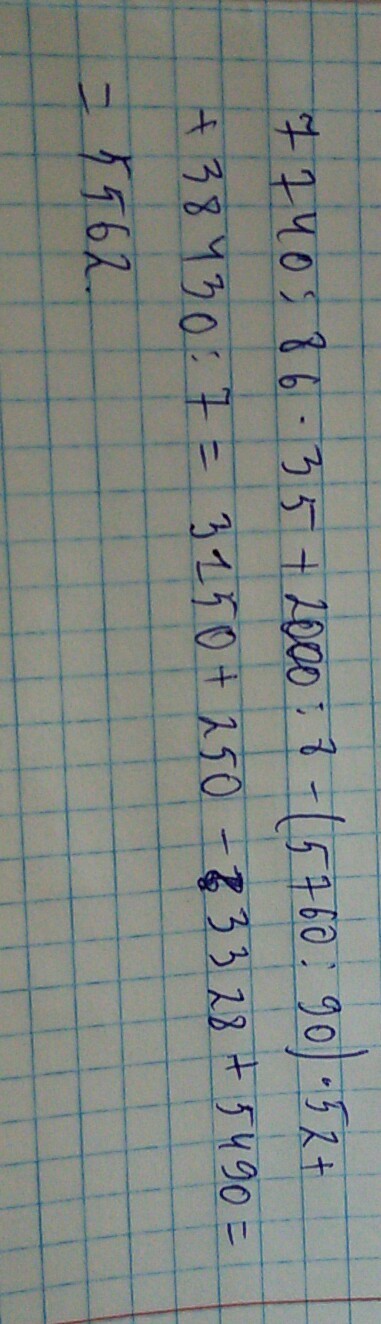 7740:86·35+2000:8-(5760:90)·52+
+38430:7=3150+250-3328+5490=
=5562.